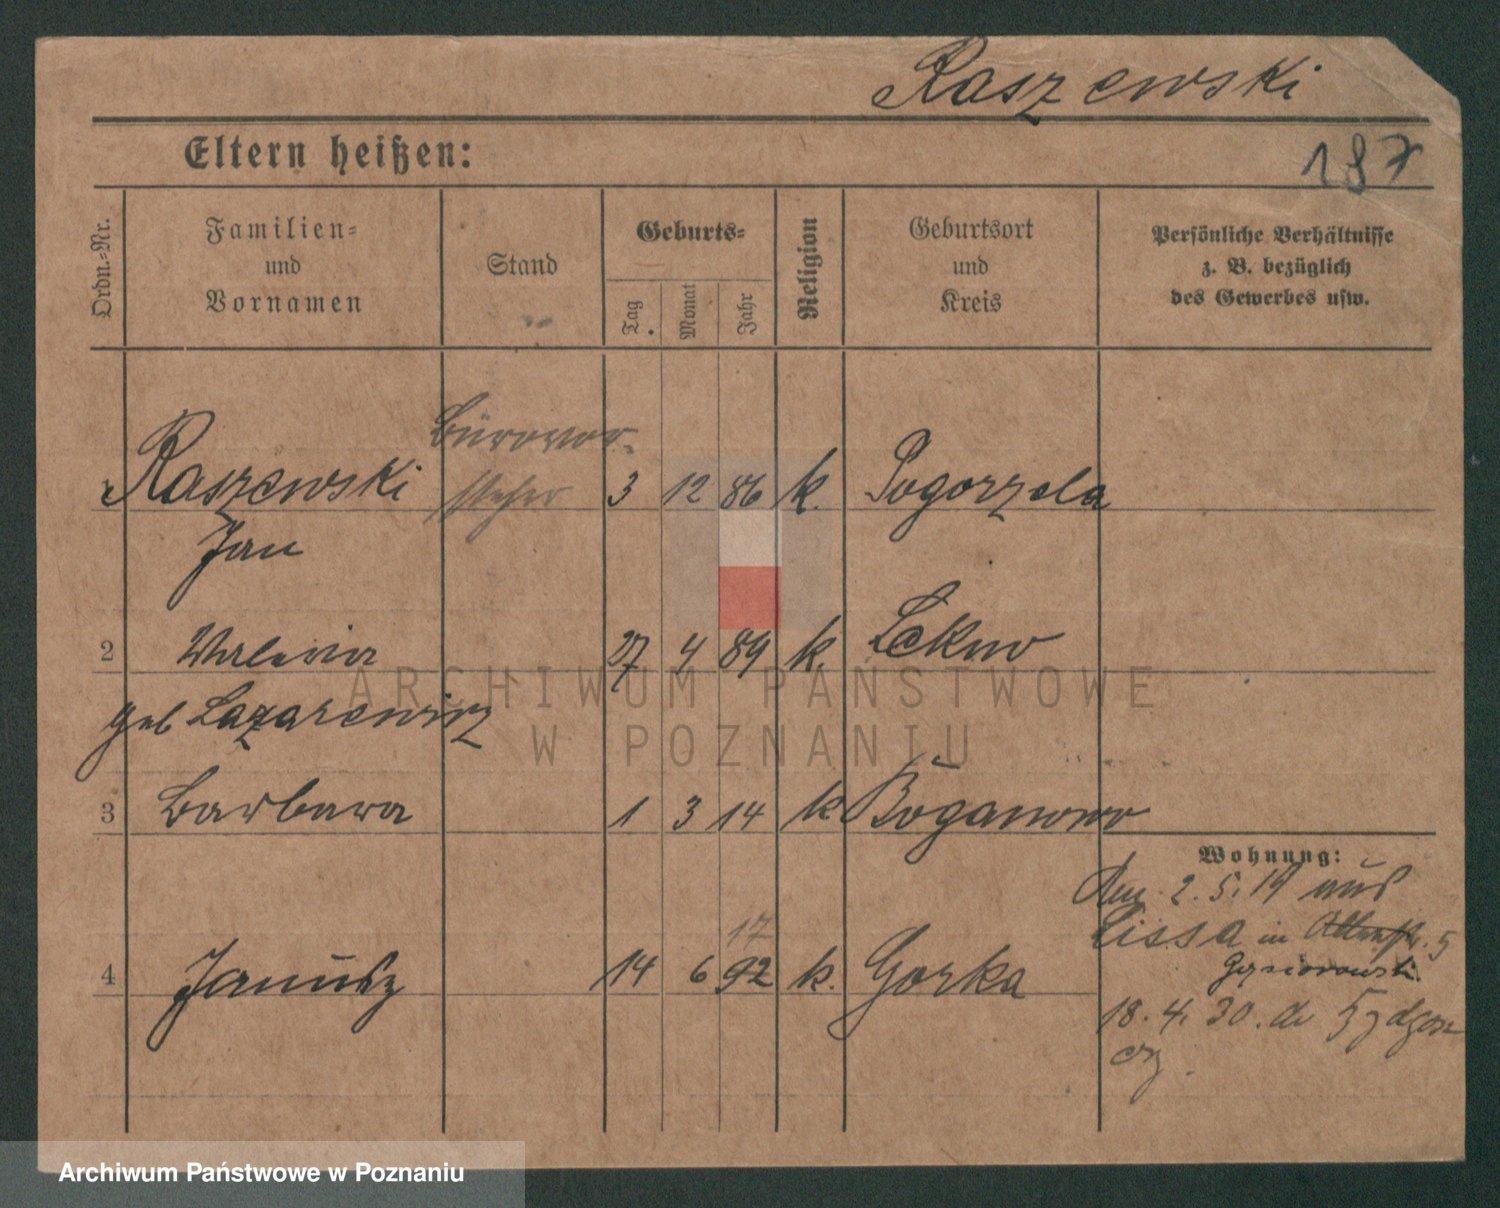 Raszewski
Eltern heißen:
187
Ordn.-Nr.
Familien-
und
Vornamen
Stand
Geburts-
Tag
Monat
Jahr
Religion
Geburtsort
und
Kreis
Persönliche Verhältnisse
z. B. bezüglich
des Gewerbes usw.
Bürovor-
1 Raszewski steher 3 12 86 k. Pogorzela
Jan
2 Valeria 27 4 89 k. Lekno
geb Lazarewicz
3 Barbara 1 3 14 k Boganowo
Wohnung:
2. 5. 19 aus
Lissa in 5
17
4 Janusz 14 6 92 k. Gorka
Gąsiorowski
18. 4. 30. do Bydgosz
czy
ARCHIWUM PAŃSTWOWE
W POZNANIU
Archiwum Państwowe w Poznaniu